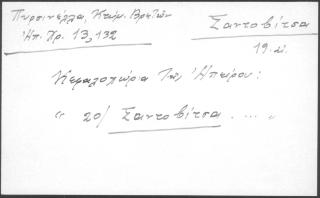 Πυρσινέλλα, Κτημ. Βρετών
Ηπ. Χρ. 13, 132
Σαντοβίτσα
19. αι.
Κεφαλοχώρια της Ηπείρου:
“ 20/ Σαντοβίτσα . ... „